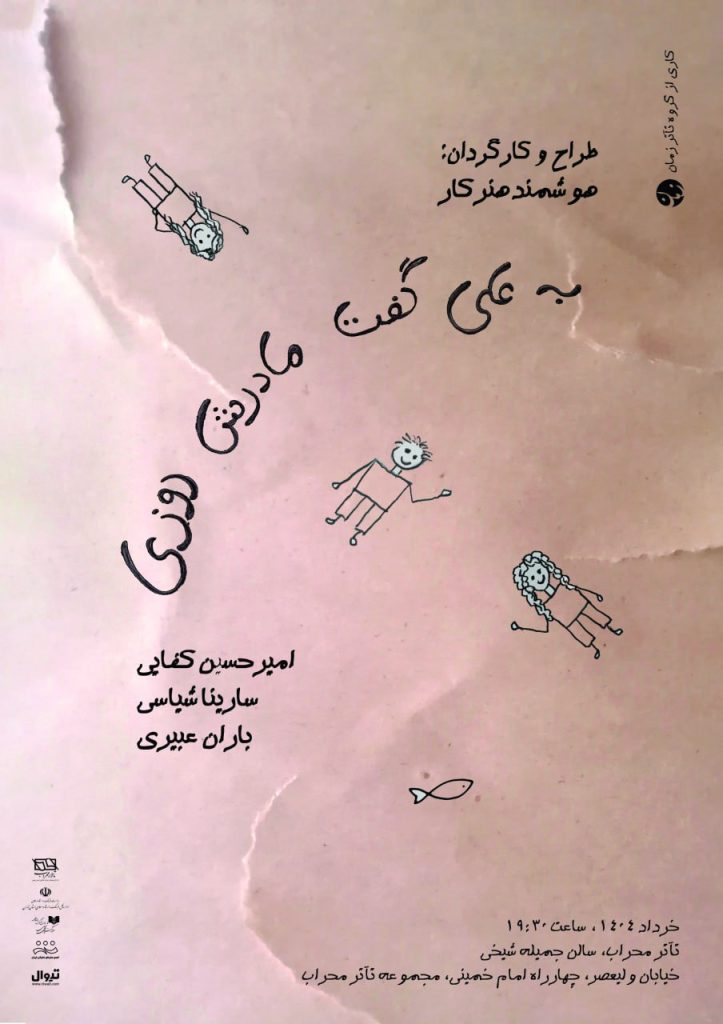 کاری از گروه تآتر زمان
طراح و کارگردان:
هوشمند هنرکار
به علی گفت مادرش روزی
امیرحسین کفایی
سارینا شیاسی
باران عبیری
خرداد ۱۴۰۴، ساعت ۱۹:۳۰
تآتر محراب، سالن جمیله شیخی
خیابان ولیعصر، چهارراه امام خمینی، مجموعه تآتر محراب
تیوال
www.tiwall.com